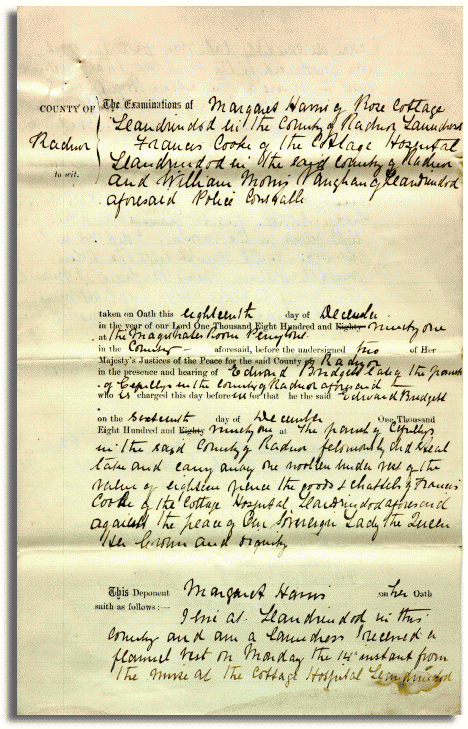 COUNTY OF The Examinations of Margaret Harris of Rose Cottage
Llandrindod in the County of Radnor Laundress
Radnor Francis Cooke of the Cottage Hospital
Llandrindod in the said County of Radnor
to wit. and William Morris Vaughan of Llandrindod
aforesaid Police Constable
taken on Oath this eighteenth day of December
in the year of our Lord One Thousand Eight Hundred and Eighty ninety one
at the Magistrates Room Penybont
in the County aforesaid, before the undersigned two of Her
Majesty's Justices of the Peace for the said County of Radnor
in the presence and hearing of Edward Bridgett late of the parish
of Cefnllys in the County of Radnor aforesaid
who is charged this day before us for that he the said Edward Bridgett
on the sixteenth day of December One Thousand
Eight Hundred and Eighty ninety one at The parish of Cefnllys
in the said County of Radnor feloniously did steal
take and carry away one woollen under vest of the
value of eighteen pence the goods & chattels of Francis
Cooke of the Cottage Hospital Llandrindod aforesaid
against the peace of Our Sovereign Lady the Queen
Her Crown and dignity
This Deponent Margaret Harris on her Oath
saith as follows:—
I live at Llandrindod in this
County and am a Laundress I received a
flannel vest on Monday the 14th instant from
the nurse at the Cottage Hospital Llandrindod